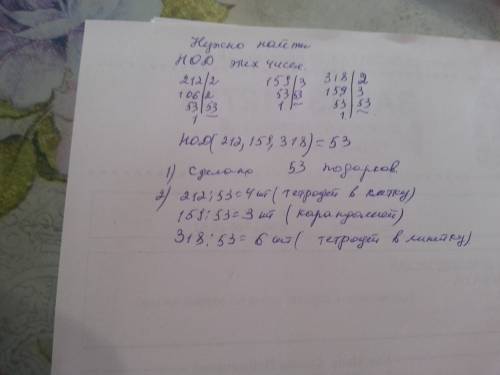 Нужно найти
НОД этих чисел.
212|2 159|3 318|2
106|2 53|53 159|3
53|53 1| 53|53
1 1|
НОД(212,159,318)=53
1) Сделано 53 подарков.
2) 212:53=4 шт (тетрадей в клетку)
159:53=3 шт (карандашей)
318:53=6 шт (тетрадей в линейку)